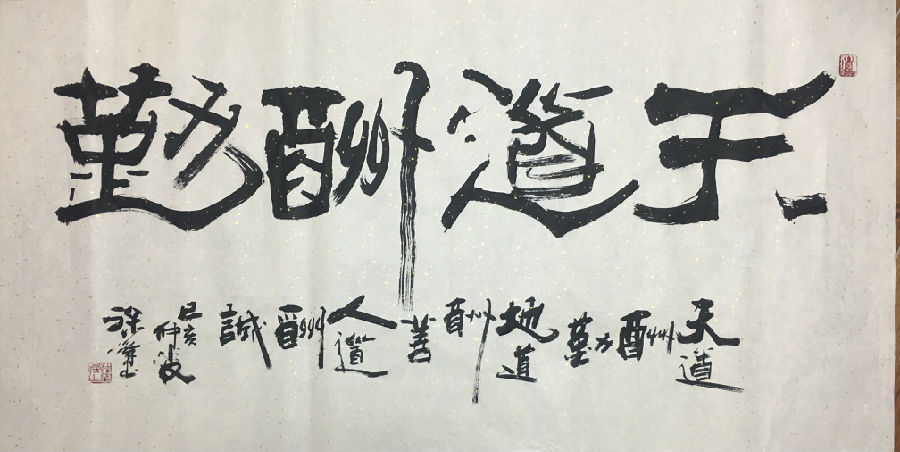 天道酬勤
天道酬勤地道酬善人道酬誠
己亥仲波